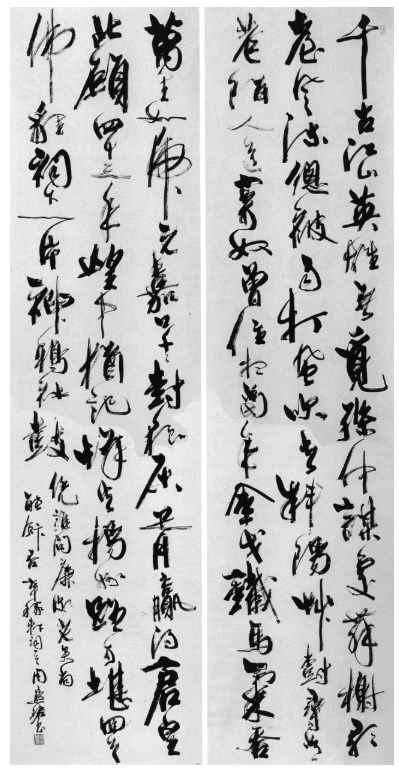 千古江山英雄無覓孫仲謀處舞榭歌
臺風流總被雨打風吹去斜陽艸樹尋常
巷陌人道寄奴曾住想當年金戈鐵馬氣吞
萬里如虎元嘉草草封狼居胥贏得倉皇
北顧四十三年望中猶記烽火揚州路可堪回首
佛貍祠下一片神鴉社鼓
憑誰問廉頗老矣尚
能飯否 辛稼軒詞